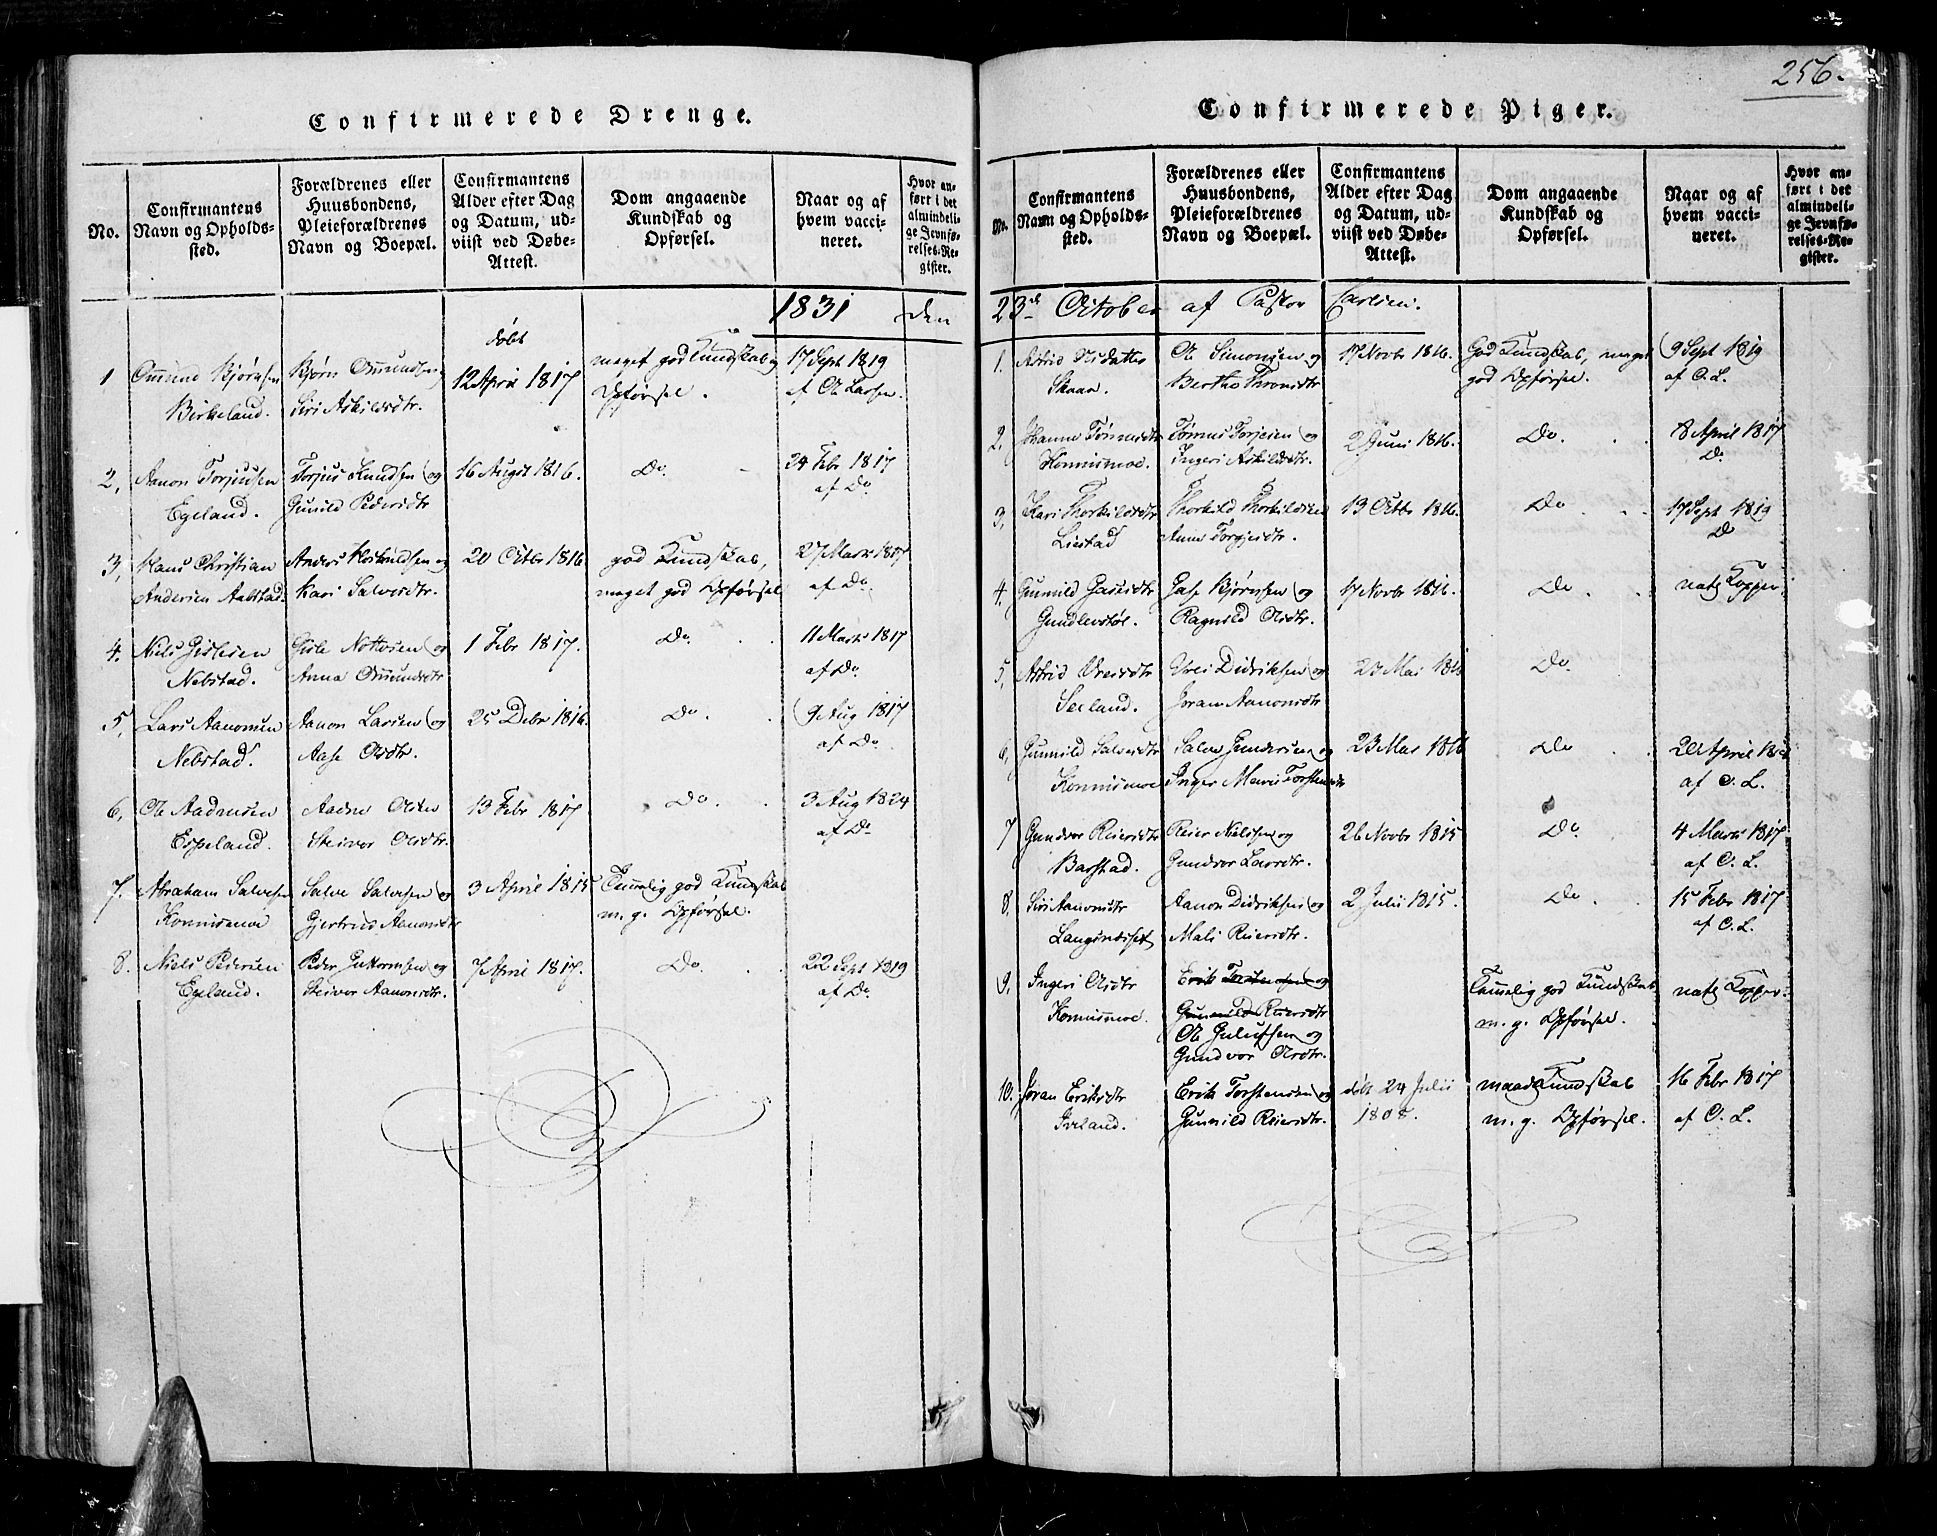 256.
Confirmerede Drenge.
No.
Confirmantens Navn og Opholdssted.
Forældrenes eller Huusbondens, Pleieforældrenes Navn og Boepæl.
Confirmantens Alder efter Dag og Datum, udviist ved Døbe-Attest.
Dom angaaende Kundskab og Opførsel.
Naar og af hvem vaccineret.
Hvor anført i det almindelige Jevnførelses-Register.
1831 den
døbt
1 Omund Bjørnsen Bjørn Omundsen og 12 April 1817 meget god Kundskab og 17 Sept 1819
Birkeland. Siri Askildsdtr. Opførsel. af Ole Larsen.
2, Aanon Torjusen Torjus Knudsen og 16 August 1816. Do. 24 Febr 1817
Egeland. Gunild Pedersdtr af Do
3, Hans Christian Anders Aslaksen og 20 Octbr 1816 god Kundskab, 27 Marts 1817
Andersen Aabstad. Kari Salvesdtr. meget god Opførsel af Do.
4. Niels Gislesen Gisle Nottosen og 1 Febr 1817. Do. 11 Marts 1817
Nebstad. Anna Omundsdtr af Do.
5, Lars Aanonsen Aanon Larsen og 25 Debr 1816. Do. 9 Aug 1817
Nebstad. Aase Olsdtr. af Do.
6, Ole Aadnesen Aadne Olsen 13 Febr 1817 Do. 3 Aug 1824
Espeland. Steivor Olsdtr. af Do
7. Abraham Salvesen Salve Salvesen og 3 April 1815 Temmelig god Kundskab
Konnismoe Gjertrud Aanonsdtr m. g. Opførsel.
8. Niels Pedersen Peder Guttormsen og 7 April 1817. Do. 22 Sept 1819
Egeland. Steivor Aanonsdtr. af Do.
Confirmerede Piger.
No.
Confirmantens Navn og Opholdssted.
Forældrenes eller Huusbondens, Pleieforældrenes Navn og Boepæl.
Confirmantens Alder efter Dag og Datum, udviist ved Døbe-Attest.
Dom angaaende Kundskab og Opførsel.
Naar og af hvem vaccineret.
Hvor anført i det almindelige Jevnførelses-Register.
23de October af Pastor Carlsen.
1. Astrid Olsdatter Ole Simonsen og 17 Novbr 1816. God Kundskab, meget 9 Sept 1819
Skaar. Berthe god Opførsel. af O. L.
2. Johanne Tønnesdtr Tønnes Torjesen og 2 Juni 1816. Do. 8 April 1817
Konnismoe. Ingeri Askildsdtr. Do
3, Kari Thorkildsdtr Thorkild Thorkildsen 13 Octbr 1816. Do 17 Sept 1819
Liestad Anne Torgjersdtr. Do
4. Gunnild Bjørnsen og 17 Novbr 1816. Do nat. Kopper
Gundlevstøl. Ragnild Olsdtr.
5, Astrid Oreisdtr Orei Didriksen og 23 Mai Do.
Seeland. Joran Aanonsdtr.
6, Gunnild Salvesdtr Salve Gundersen og 23 Mai 1816 Do 20 April
Konnismoe Inger Marie Torstensdtr af O. L.
7 Gundvor Reiersdtr Reier Nielsen og 26 Novbr 1815 Do. 4 Marts 1817
Barstad. Gundvor Larsdtr. af O. L.
8. Siri Aanonsdtr Aanon Didriksen og 2 Julii 1815. Do. 15 Febr 1817
Mali Reiersdtr. af O. L.
9, Ingeri Olsdtr Erik Torstensen og Temmelig god Kundskab nat. Kopper.
Konnismoe. Gunnild Reiersdtr m. g. Opførsel.
Ole Julufsen og
Gundvor Olsdtr.
10. Joran Eriksdtr Erik Torstensen og døbt 24 Julii maad. Kundskab 16 Febr 1817
Iveland. Gunnild Reiersdtr. 1808. m. g. Opførsel. af O. L.